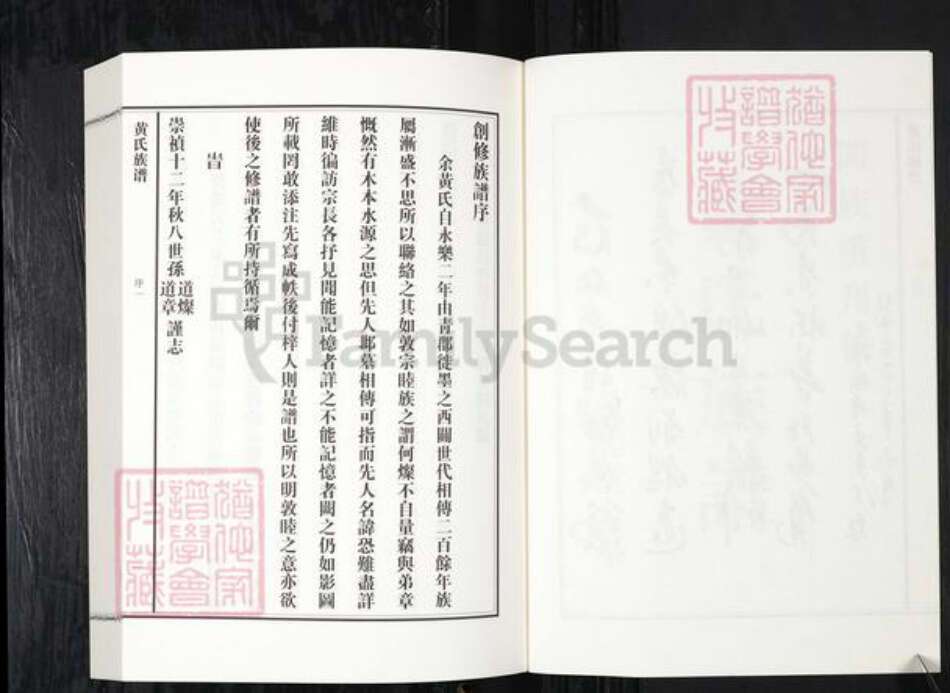 創修族譜序
余黃氏自永樂二年由青郡徙墨之西關世代相傳二百餘年族
屬漸盛不思所以聯絡之其如敦宗睦族之謂何燦不自量竊與弟章
慨然有木本水源之思但先人邱墓相傳可指而先人名諱恐難盡詳
維時徧訪宗長各抒見聞能記憶者詳之不能記憶者闕之仍如影圖
所載罔敢添注先寫成帙後付梓人則是譜也所以明敦睦之意亦欲
使後之修譜者有所持循焉爾
旹
崇禎十二年秋八世孫道燦道章謹志
黃氏族譜
序一
FamilySearch